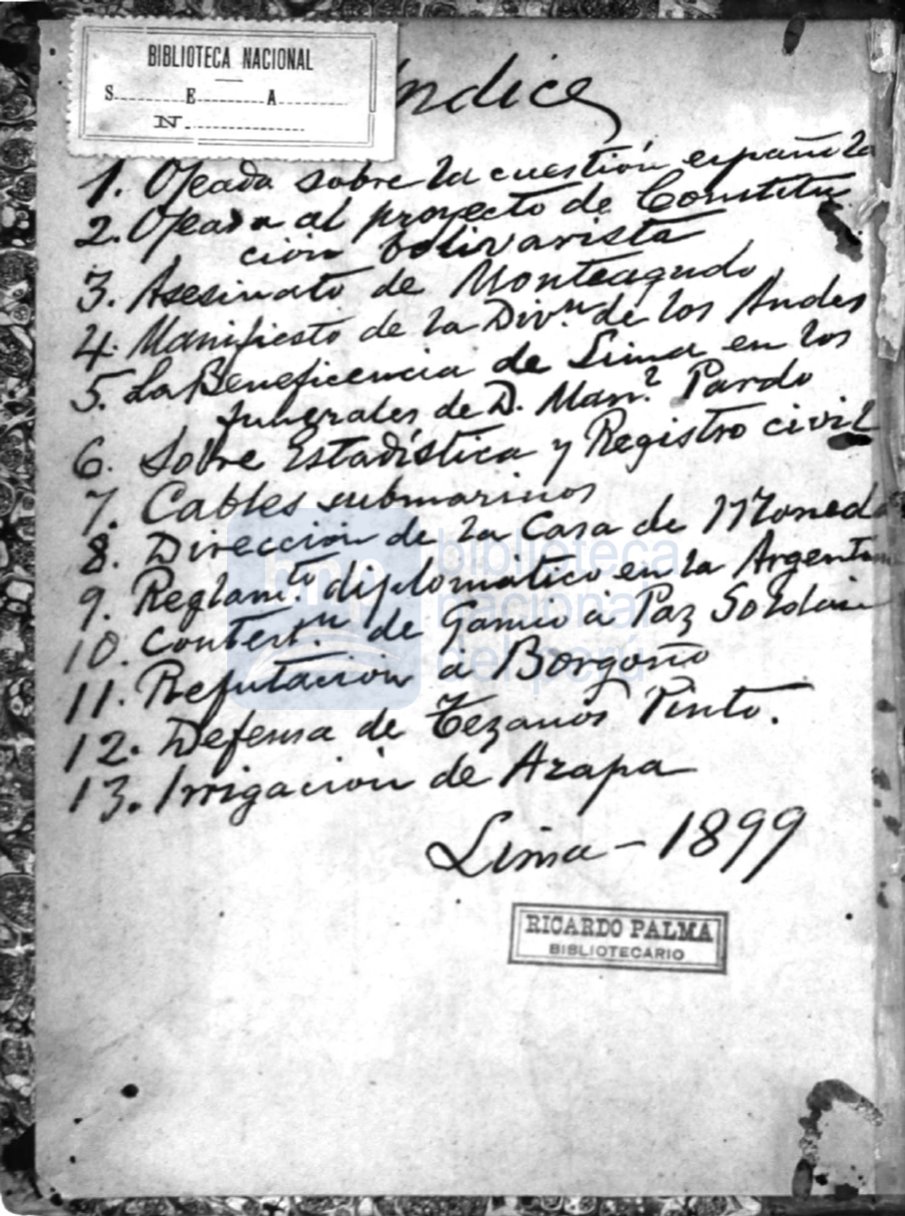 BIBLIOTECA NACIONAL
S. E. A.
N.
Indice
1. Ojeada sobre la cuestión española
2. Ojeada al proyecto de Constitu
ción bolivarista
3. Asesinato de Monteagudo
4. Manifiesto de la Divn. de los Andes
5. La Beneficencia de Lima en los
funerales de D. Manl. Pardo
6. Sobre Estadística y Registro civil
7. Cables submarinos
8. Dirección de la Casa de Moneda
9. Reglamto. diplomatico en la Argentina
10. Contestn. de Gamio á Paz Soldan
11. Refutacion á Borgoño
12. Defensa de Tezanos Pinto.
13. Irrigacion de Azapa
Lima - 1899
RICARDO PALMA
BIBLIOTECARIO
bnp
biblioteca
nacional
del perú